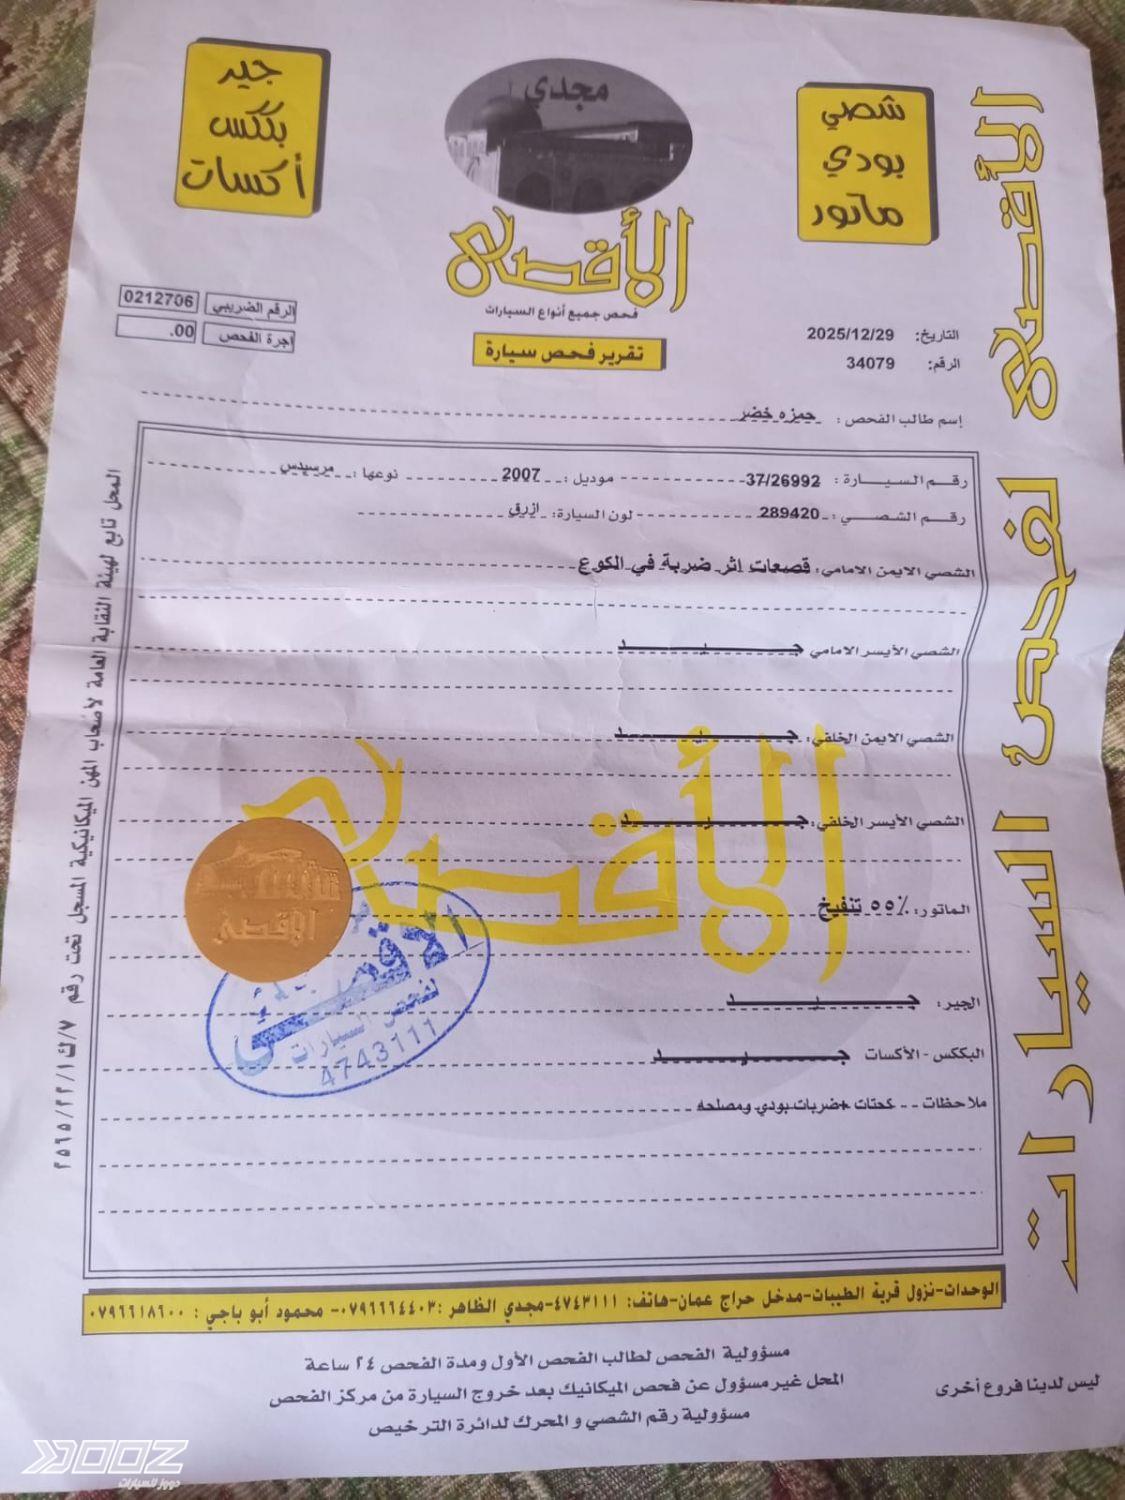 جير
بككس
أكسات
مجدي
الأقصى
فحص جميع أنواع السيارات
تقرير فحص سيارة
شصي
بودي
ماتور
الأقصى لفحص السيارات
الرقم الضريبي 0212706
اجرة الفحص .00
التاريخ: 2025/12/29
الرقم: 34079
إسم طالب الفحص : حمزه خضر
رقم السيارة : 37/26992 موديل : 2007 نوعها : مرسيدس
رقم الشصي : 289420 لون السيارة: ازرق
الشصي الايمن الامامي: قصعات اثر ضربة في الكوع
الشصي الأيسر الامامي جيد
الشصي الايمن الخلفي: جيد
الشصي الأيسر الخلفي: جيد
الماتور: ٥٥٪ تنفيخ
الجير: جيد
البككس - الأكسات جيد
ملاحظات -- كحتات +ضربات بودي ومصلحه
الأقصى
الأقصى
الأقصى
لفحص السيارات
4743111
المحل تابع لهيئة النقابة العامة لأصحاب المهن الميكانيكية المسجل تحت رقم ٧/ك١/٢٢/٢٥٦٥
الوحدات-نزول قرية الطيبات-مدخل حراج عمان-هاتف: ٤٧٤٣١١١-مجدي الظاهر :٠٧٩٦٦٦٤٤٠٣- محمود أبو باجي : ٠٧٩٦٦١٨٦٠٠
مسؤولية الفحص لطالب الفحص الأول ومدة الفحص ٢٤ ساعة
المحل غير مسؤول عن فحص الميكانيك بعد خروج السيارة من مركز الفحص
مسؤولية رقم الشصي و المحرك لدائرة الترخيص
ليس لدينا فروع أخرى
DOOZ
دووز للسيارات